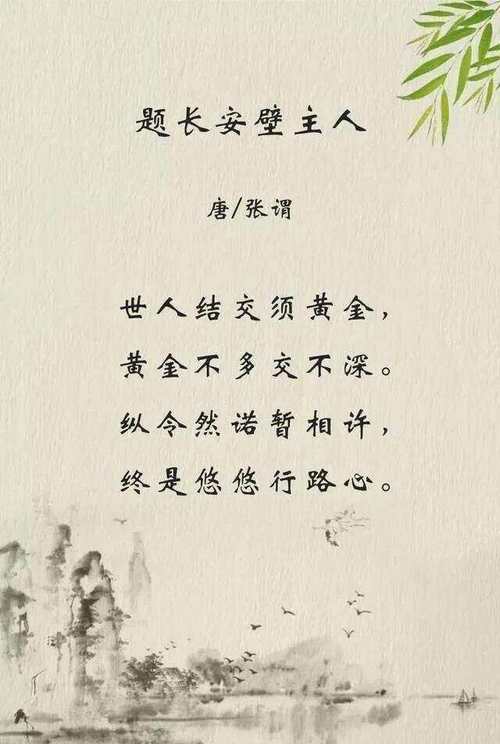 题长安壁主人
唐/张谓
世人结交须黄金，
黄金不多交不深。
纵令然诺暂相许，
终是悠悠行路心。